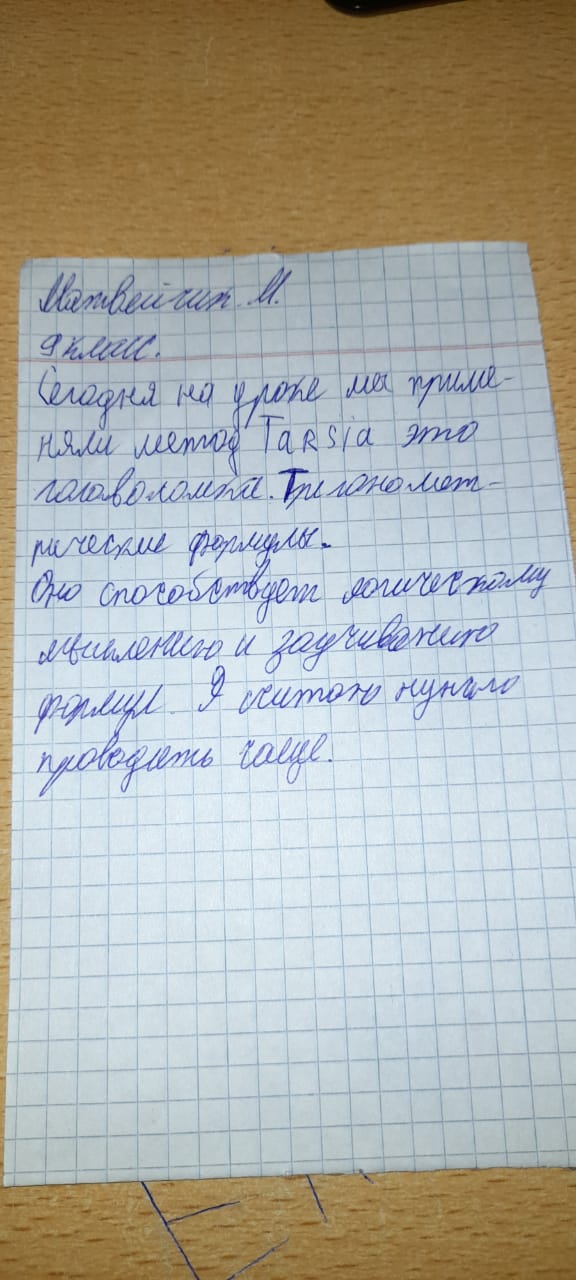 Матвейчик М.
9 класс.
Сегодня на уроке мы приме-
няли метод Tarsia это
головоломка. Тригономет-
рические формулы.
Оно способствует логическому
мышлению и заучиванию
формул. Я считаю нужно
проводить чаще.